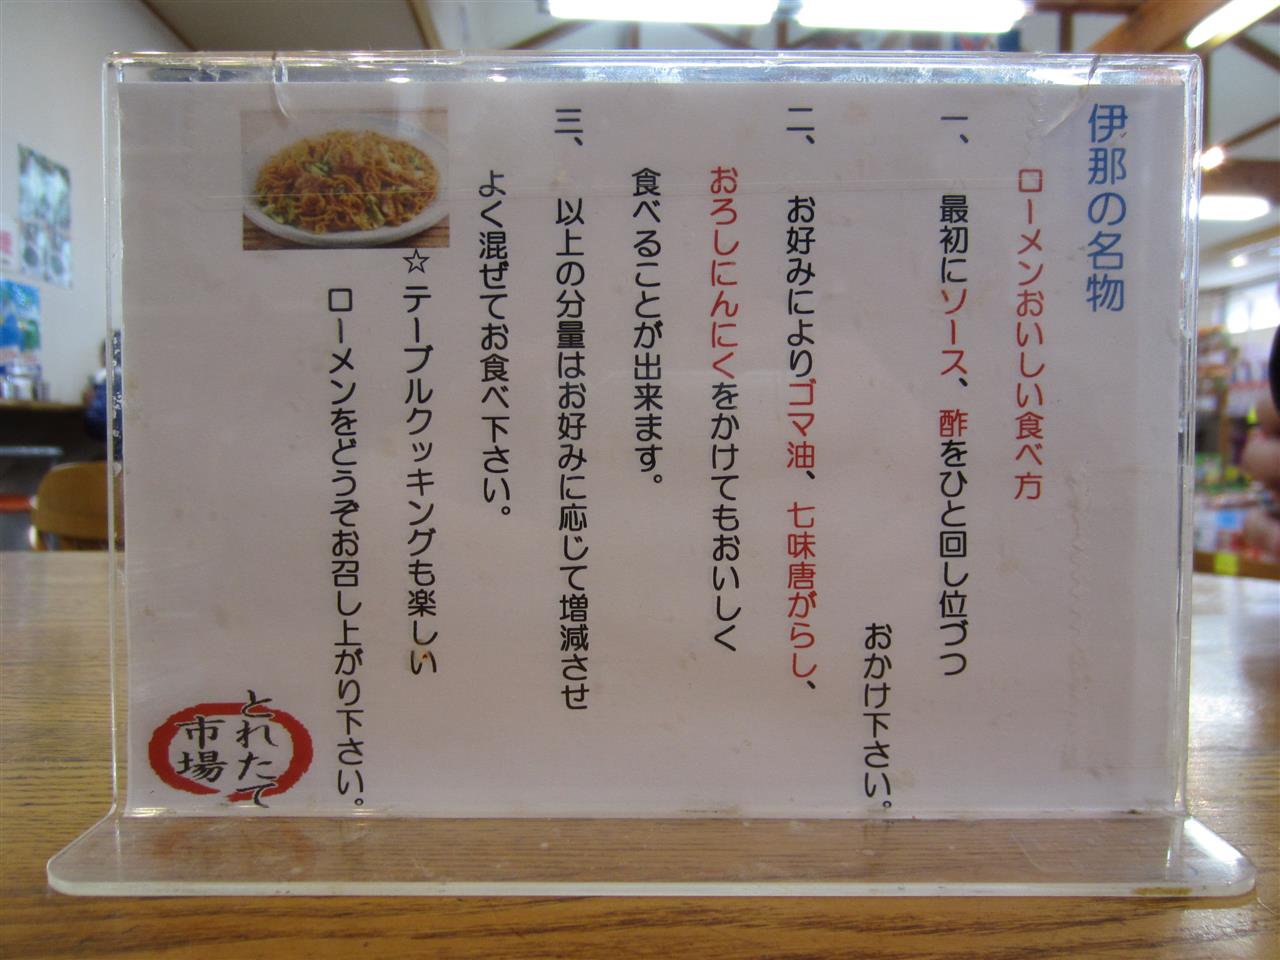 伊那の名物
ローメンおいしい食べ方
一、 最初にソース、酢をひと回し位づつ
おかけ下さい。
二、 お好みによりゴマ油、七味唐がらし、
おろしにんにくをかけてもおいしく
食べることが出来ます。
三、 以上の分量はお好みに応じて増減させ
よく混ぜてお食べ下さい。
☆テーブルクッキングも楽しい
ローメンをどうぞお召し上がり下さい。
とれたて
市場